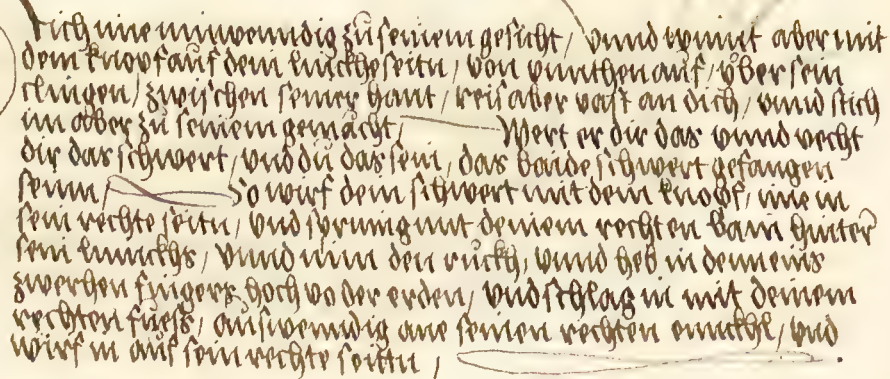 stich ime innwenndig zu seinem gesicht / vnnd wynnt aber mit
dem knopf auf dein linckhe seitn / von vnnthen auf / vber sein
clingen / zwischen seiner hant / reis aber vast an dich / vnnd stich
im aber zu seinem gemächt / Wert er dir das vnnd vecht
dir das schwert / vnd du das sein / das baide schwert gefangen
seinn / So wirf dein schwert mit dem knopf / ime in
sein rechte seitn / vnd spring mit deinem rechten bain hinter
sein linnckhs / vnnd nim den rückh / vnnd heb in denn eins
zwerhen fingers hoch vo der erden / vnd schlag in mit deinem
rechten fuess / auswenndig ane seinen rechten ennckhl / vnd
wirf in auf sein rechte seittn /